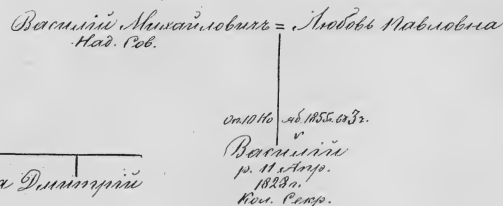 Василій Михайловичъ = Любовь Павловна
Над. Сов.
яб. 1855
Василій
р. 11 Апр.
1828 г.
Кол. Секр.
а Дмитрій